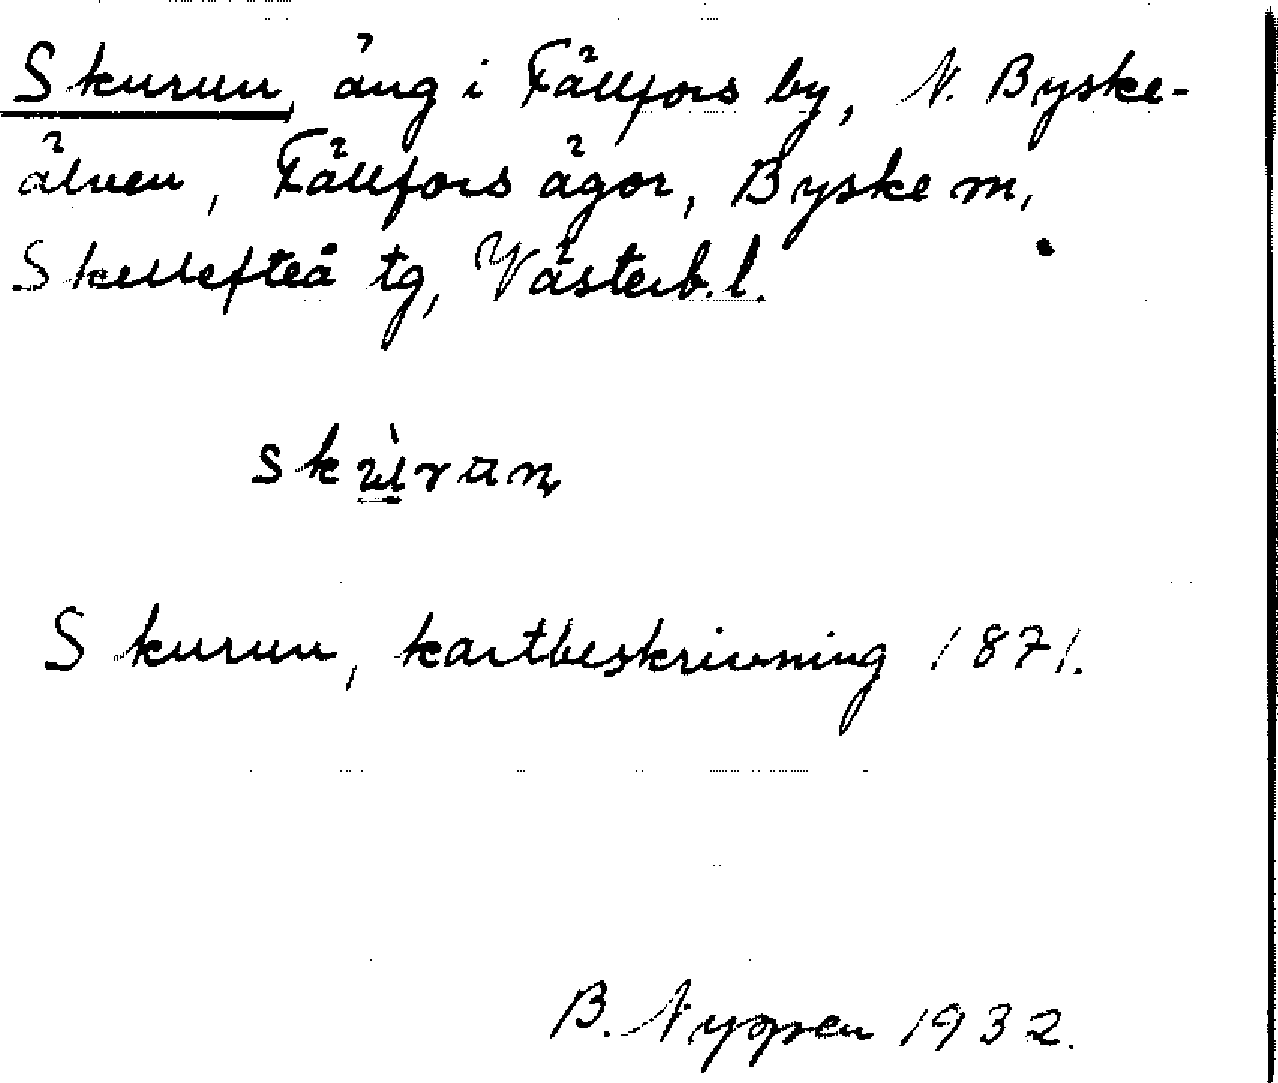 Skurun, äng i Fällfors by, N. Byske-
älven, Fällfors ägor, Byske sn,
Skellefteå tg, Västerb. l.
skùrun
Skurun, kartbeskrivning 1871.
B. Nyppen 1932.